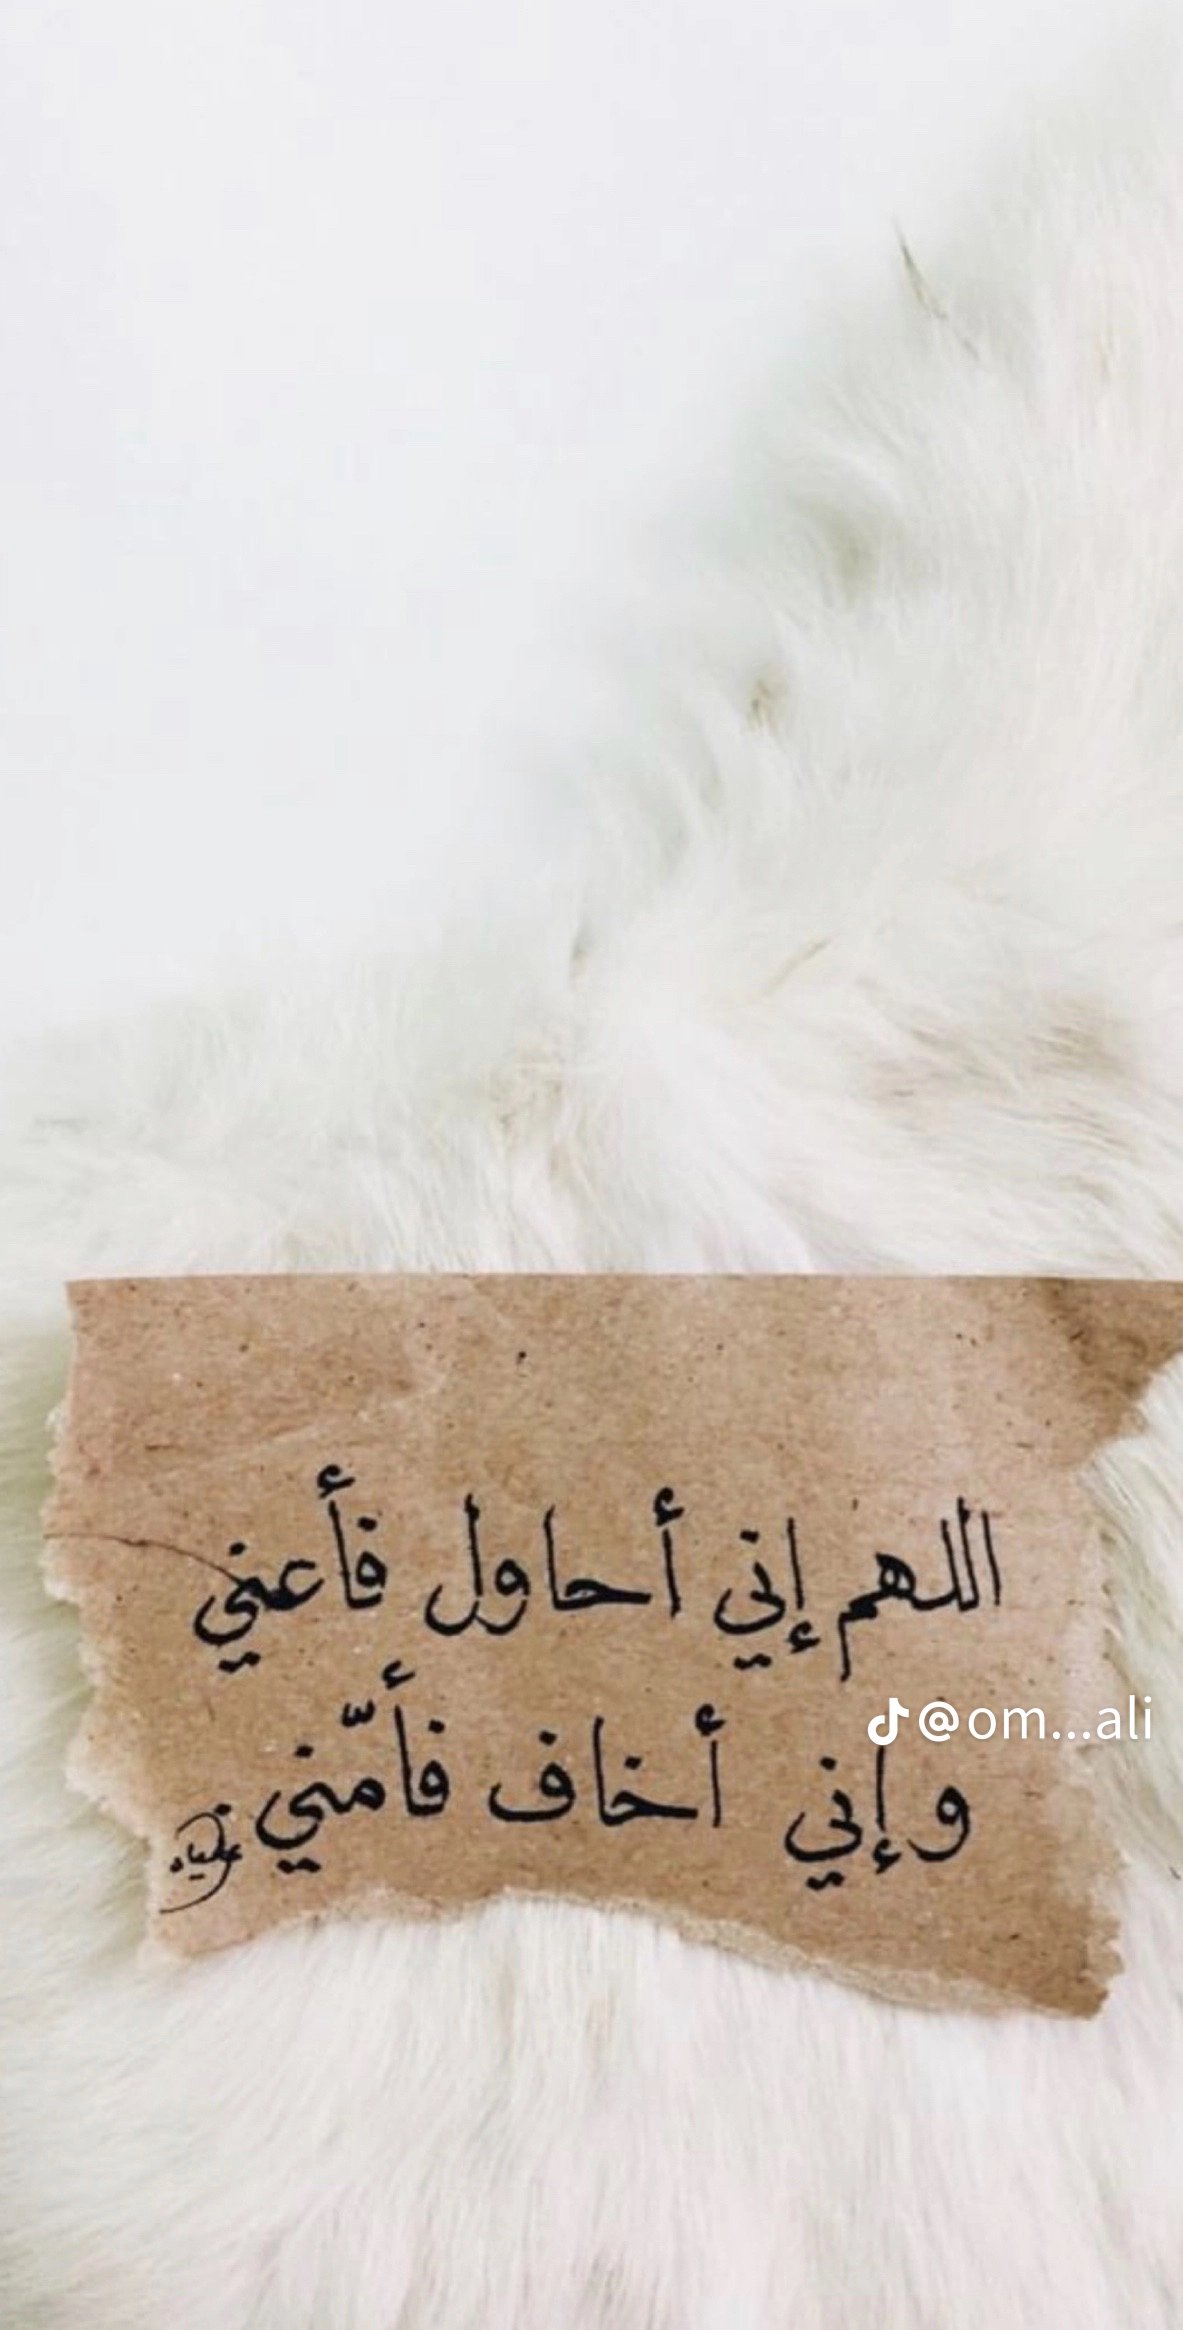 اللهم إني أحاول فأعني
@om...ali
وإني أخاف فأمّني
علياء